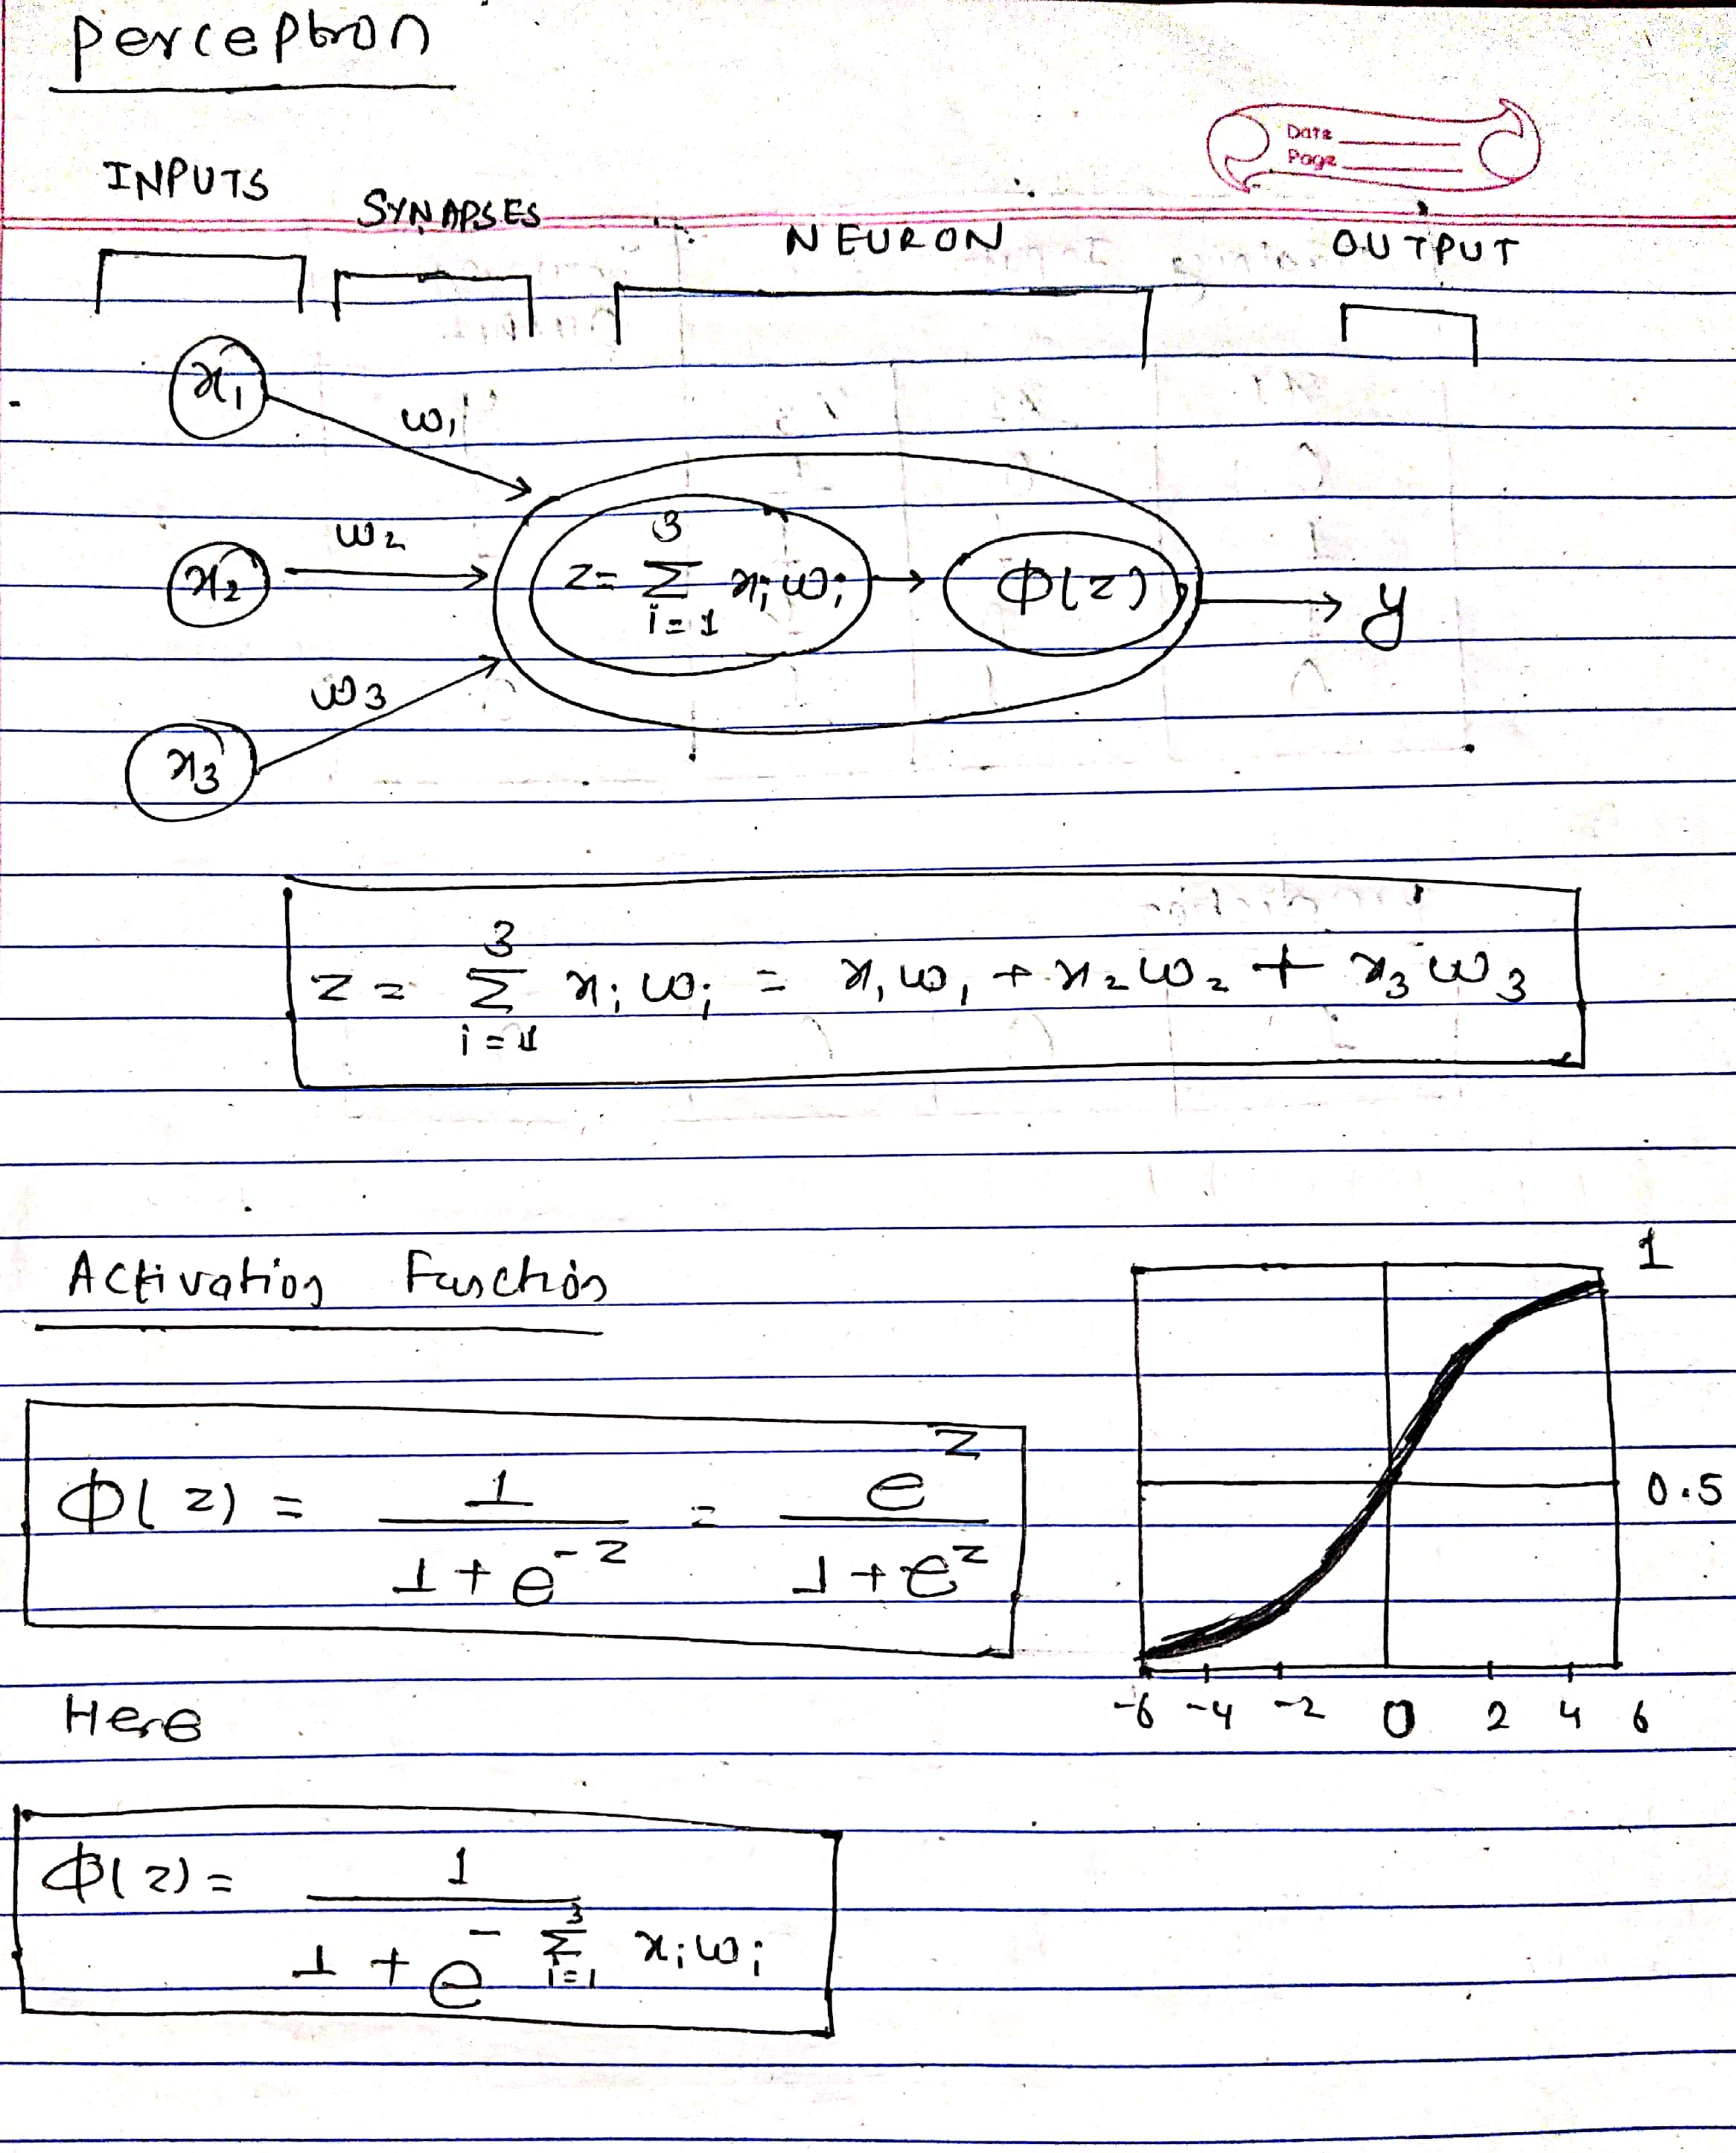 perceptron
Date
Page
INPUTS SYNAPSES NEURON OUTPUT
x₁ w₁
x₂ w₂ z = Σ³ᵢ₌₁ xᵢwᵢ → Φ(z) → y
x₃ w₃
z = Σ³ᵢ₌₁ xᵢwᵢ = x₁w₁ + x₂w₂ + x₃w₃
Activation Function
Φ(z) = 1 / (1 + e⁻ᶻ) = eᶻ / (1 + eᶻ)
1
0.5
-6 -4 -2 0 2 4 6
Here
Φ(z) = 1 / (1 + e^(- Σ³ᵢ₌₁ xᵢwᵢ))